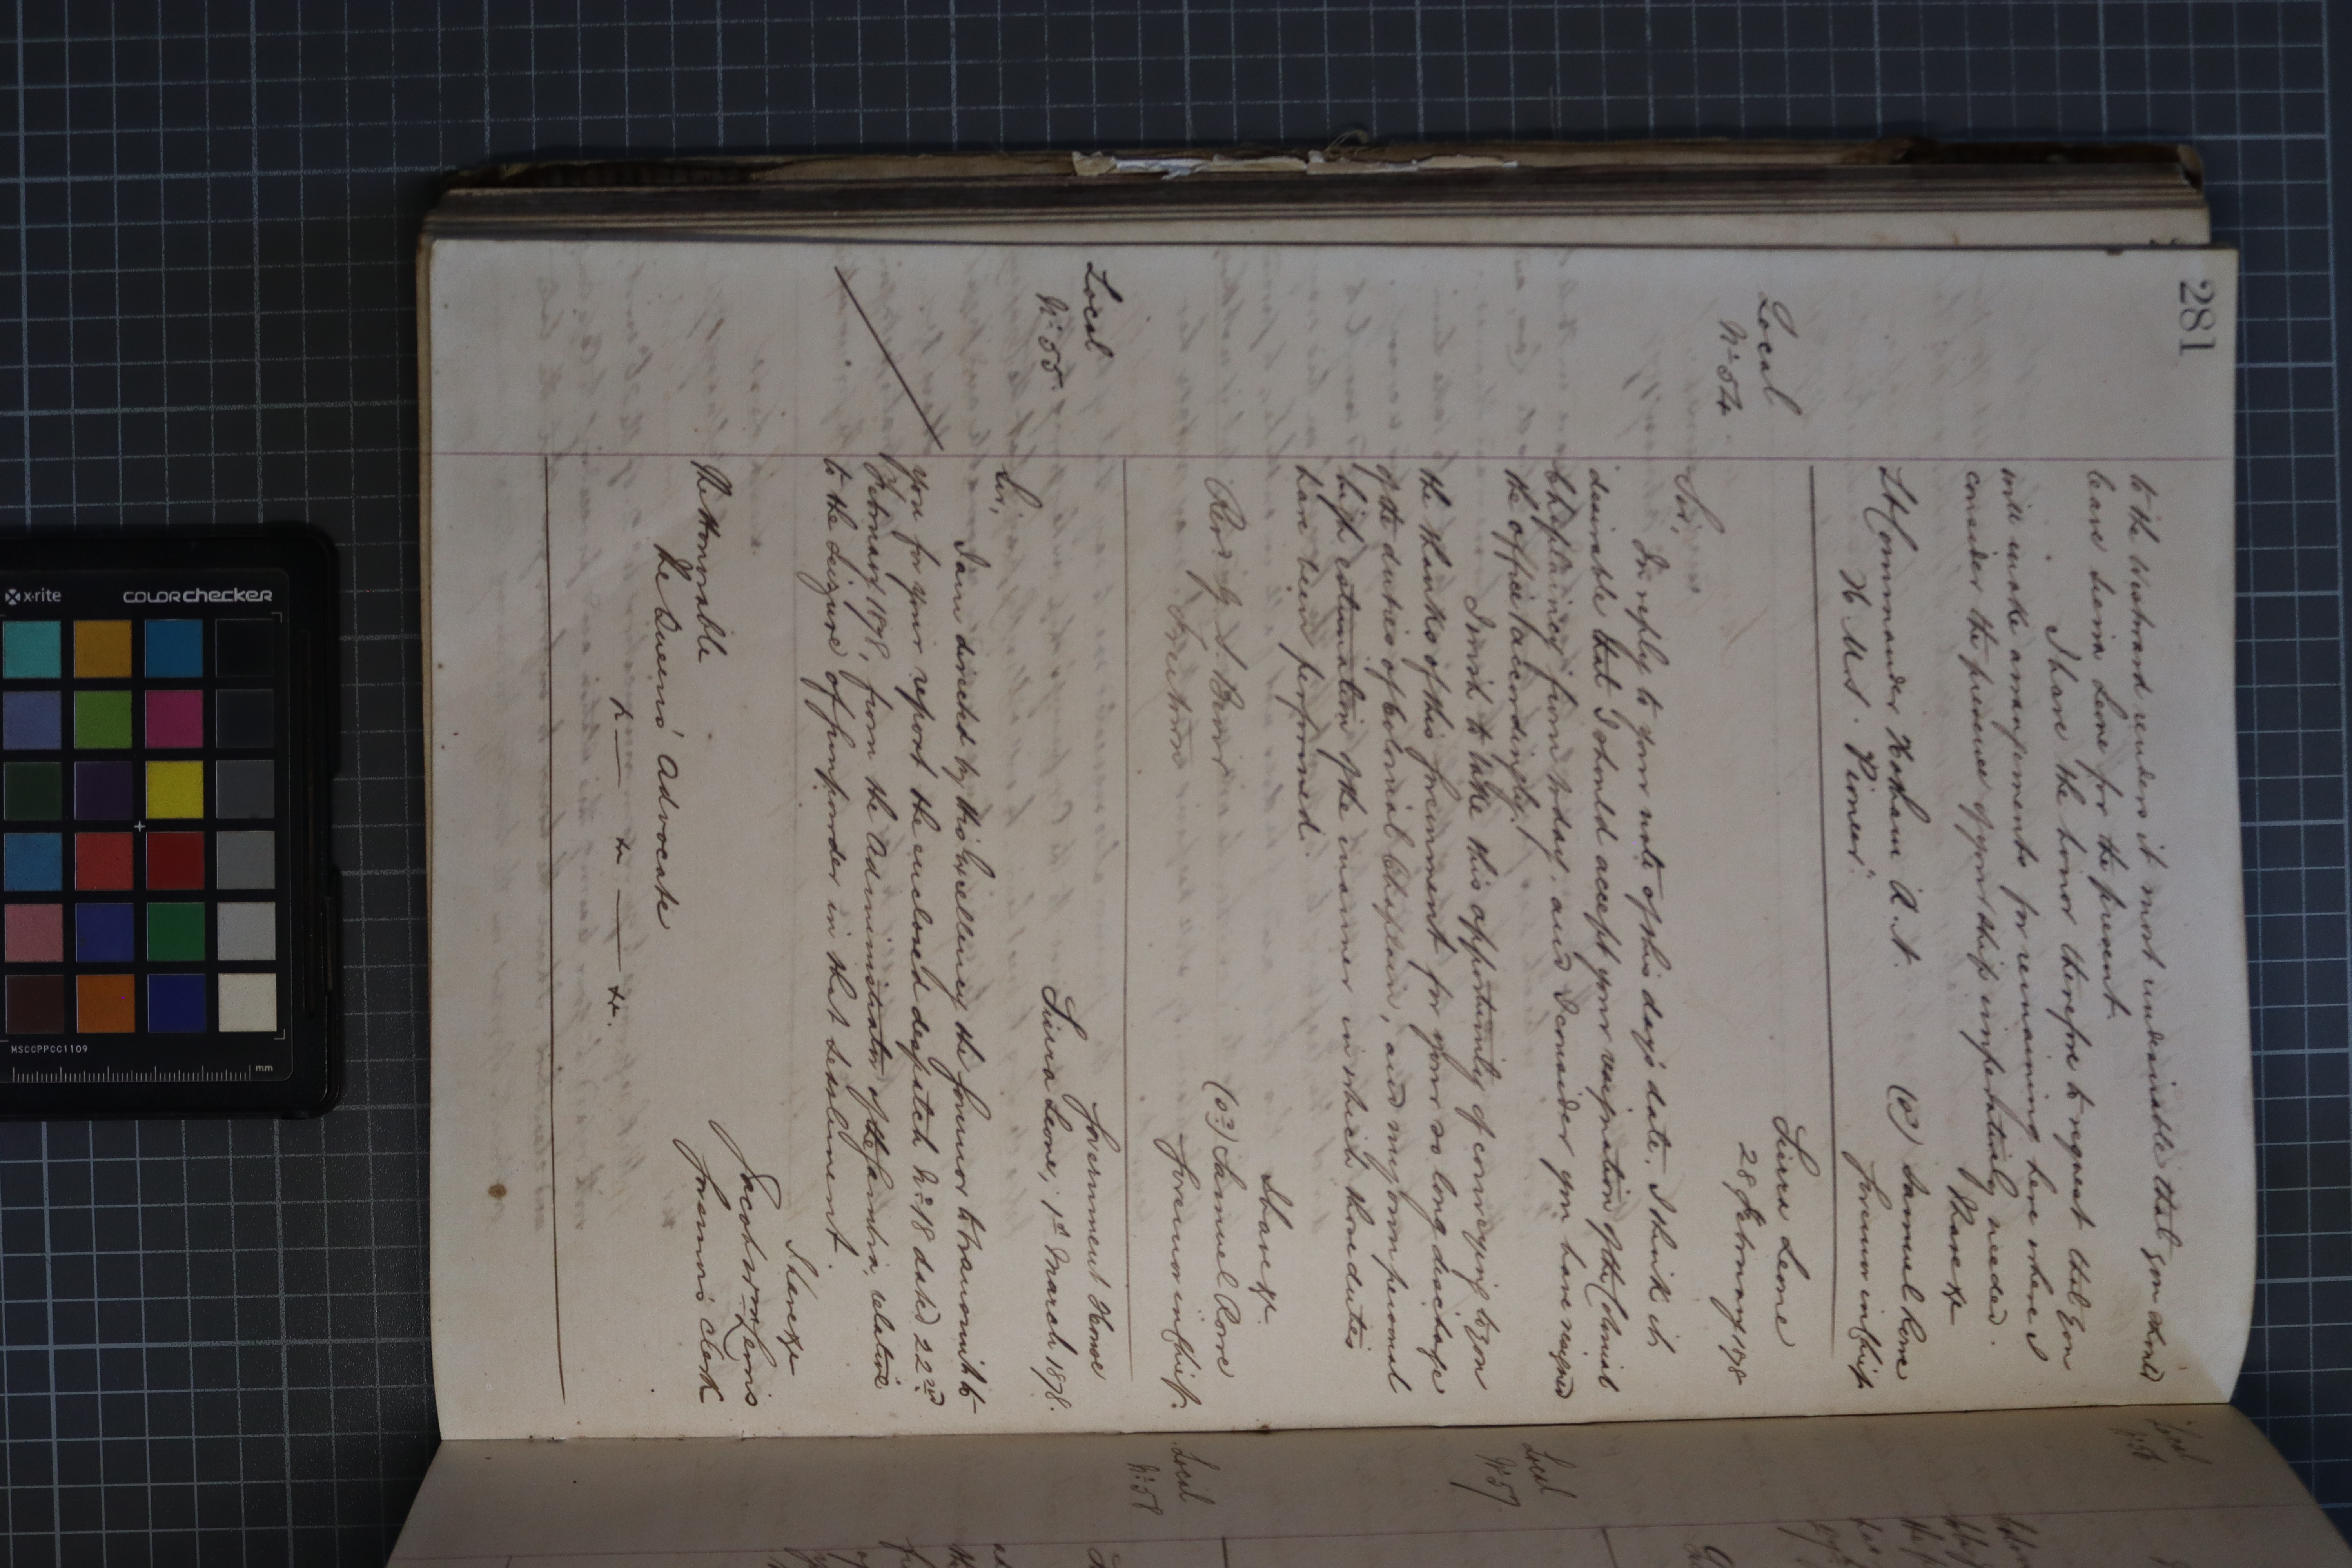 281
to the Westward renders it most undesirable that you should
leave Sierra Leone for the present.
I have the honor therefore to request that you
will make arrangements for remaining here where I
consider the presence of your ship imperatively needed.
I have &c
(Sd) Samuel Rowe
Governor in Chief
Lt Commander Hotham R.N.
H.M.S. "Pioneer"
Local
No 54
Sierra Leone
28 February 1878
Sir,
In reply to your note of this day's date, I think it
desirable that I should accept your resignation of the Colonial
Chaplaincy from today, and I consider you have resigned
the office accordingly.
I wish to take this opportunity of conveying to you
the thanks of this Government for your so long discharge
of the duties of Colonial Chaplain, and my own personal
high estimation of the manner in which those duties
have been performed.
I have &c.
(Sd) Samuel Rowe
Governor in Chief.
Freetown
Local
No 55.
Government House
Sierra Leone, 1st March 1878.
Sir,
I am directed by His Excellency the Governor to transmit to
you for your report the enclosed despatch No 18 dated 22nd
February 1878, from the Administrator of the Gambia, relative
to the seizure of gunpowder in that Settlement.
I have &c
Jacob W. Lewis
Governor's Clerk
The Honorable
The Queen's Advocate
Local
No 56.
Local
No 57.
Local
No 58
x-rite
colorchecker
MSCCPPCC1109
mm